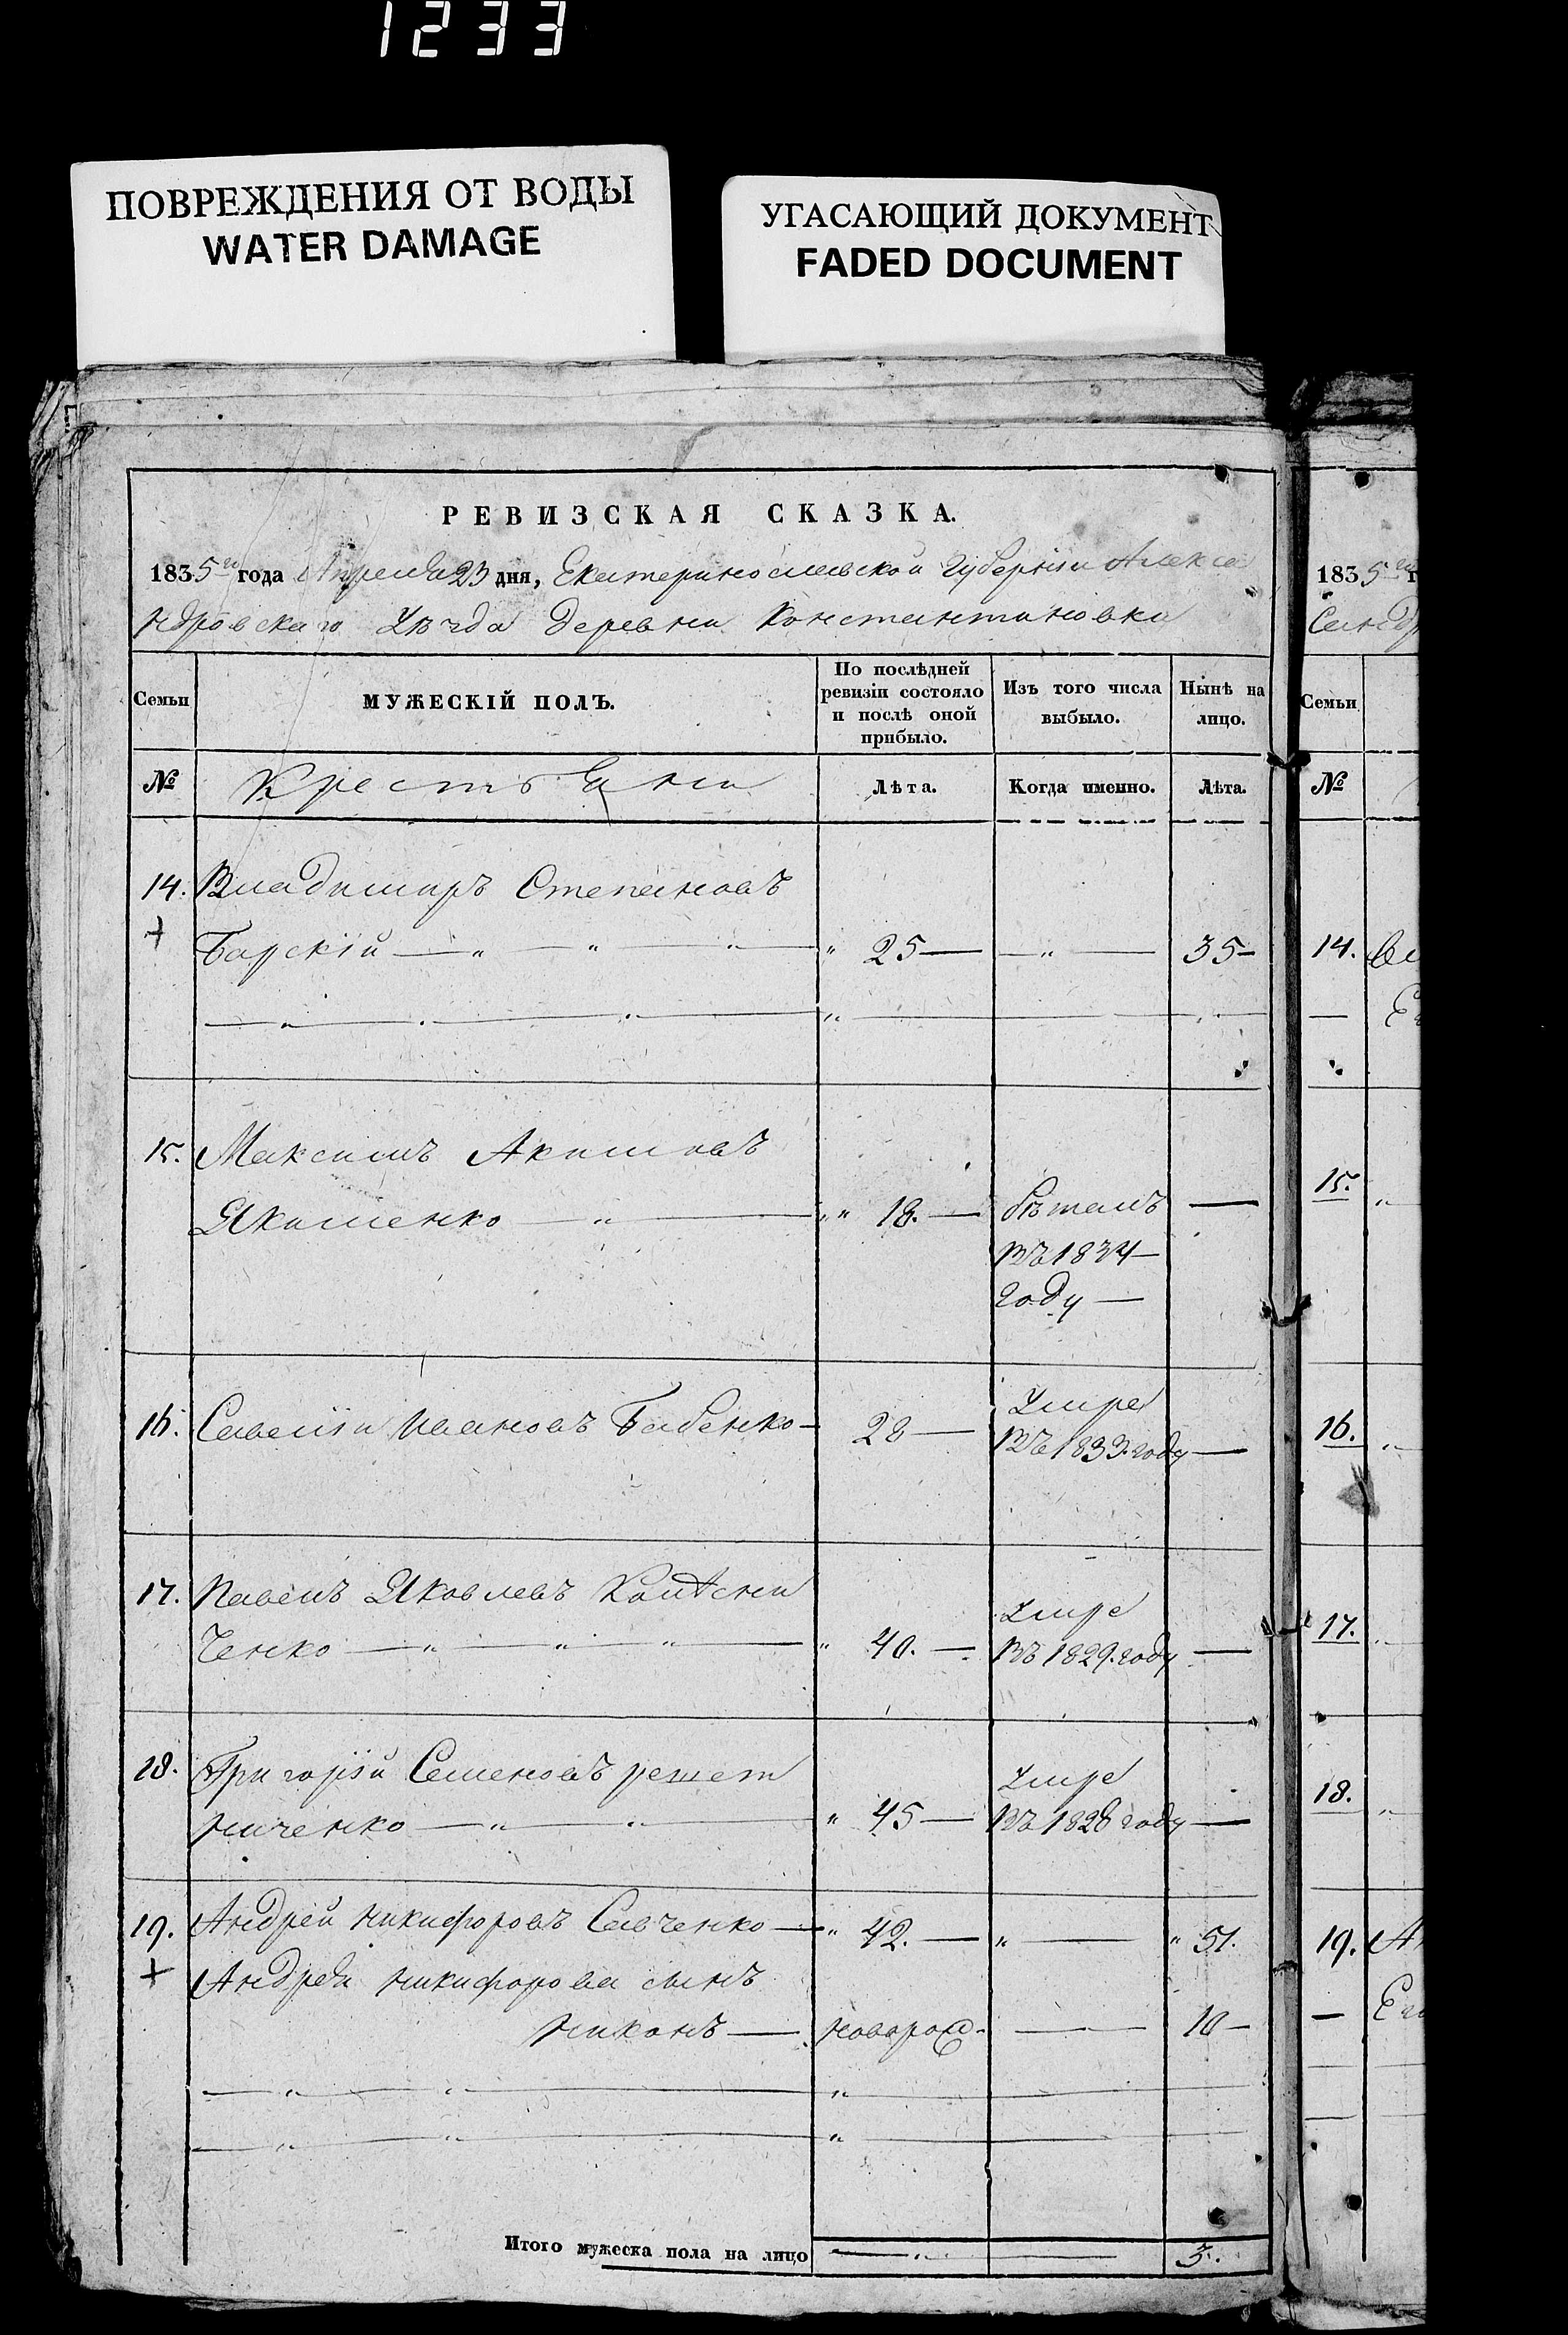 1233
ПОВРЕЖДЕНИЯ ОТ ВОДЫ
WATER DAMAGE
УГАСАЮЩИЙ ДОКУМЕНТ
FADED DOCUMENT
РЕВИЗСКАЯ СКАЗКА.
1835го года Апреля 23 дня, Екатеринославской Губернiи Алекса
ндровскаго Уѣзда деревни Константиновки
Семьи
МУЖЕСКІЙ ПОЛЪ.
По послѣдней ревизіи состояло и послѣ оной прибыло.
Изъ того числа выбыло.
Нынѣ на лицо.
№ Крестьяни Лѣта. Когда именно. Лѣта.
14. Владимиръ Степановъ
+ Барскій — " — " — " — " 25 — — " — 35 —
15. Максимъ Акимовъ
Якименко — " — " " 18. — бѣжалъ —
въ 1834 —
году —
16. Савелiй Ивановъ Бабенко — 28 — Умре
въ 1833. году —
17. Павелъ Яковлевъ
ченко — " — " — " — " 40. — Умре
въ 1829. году —
18. Григорiй Семеновъ решет
ниченко — " — " — " 45 — Умре
въ 1828 году —
19. Андрей Никифоровъ Савченко — " 42. — " — " 51.
+ Андрея Никифорова сынъ
Никонъ — новорож. — 10 —
Итого мужеска пола на лицо — " — 3.
1835го г
Семьи
№
14.
15.
16.
17.
18.
19.